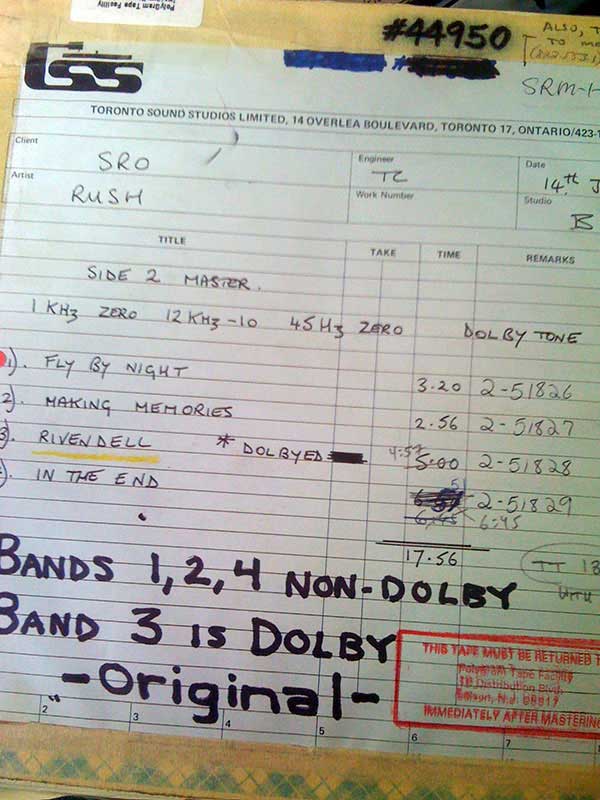 PolyGram Tape Facility
#44950
ALSO, T
TO
SRM-1
tss
TORONTO SOUND STUDIOS LIMITED, 14 OVERLEA BOULEVARD, TORONTO 17, ONTARIO/423-1
Client SRO Engineer TC Date 14th J
Artist RUSH Work Number Studio B
TITLE TAKE TIME REMARKS
SIDE 2 MASTER.
1 KHz ZERO 12 KHz-10 45 Hz ZERO DOLBY TONE
1). FLY BY NIGHT 3.20 2-51826
2). MAKING MEMORIES 2.56 2-51827
3). RIVENDELL * DOLBYED 4:57 5.00 2-51828
). IN THE END 2-51829
6:45
17.56 TT
BANDS 1,2,4 NON-DOLBY
BAND 3 IS DOLBY
-Original-
THIS TAPE MUST BE RETURNED T
Polygram Tape Facility
Distribution Blvd.
Edison, N.J. 08817
IMMEDIATELY AFTER MASTERING
2 3 4 5 6 7